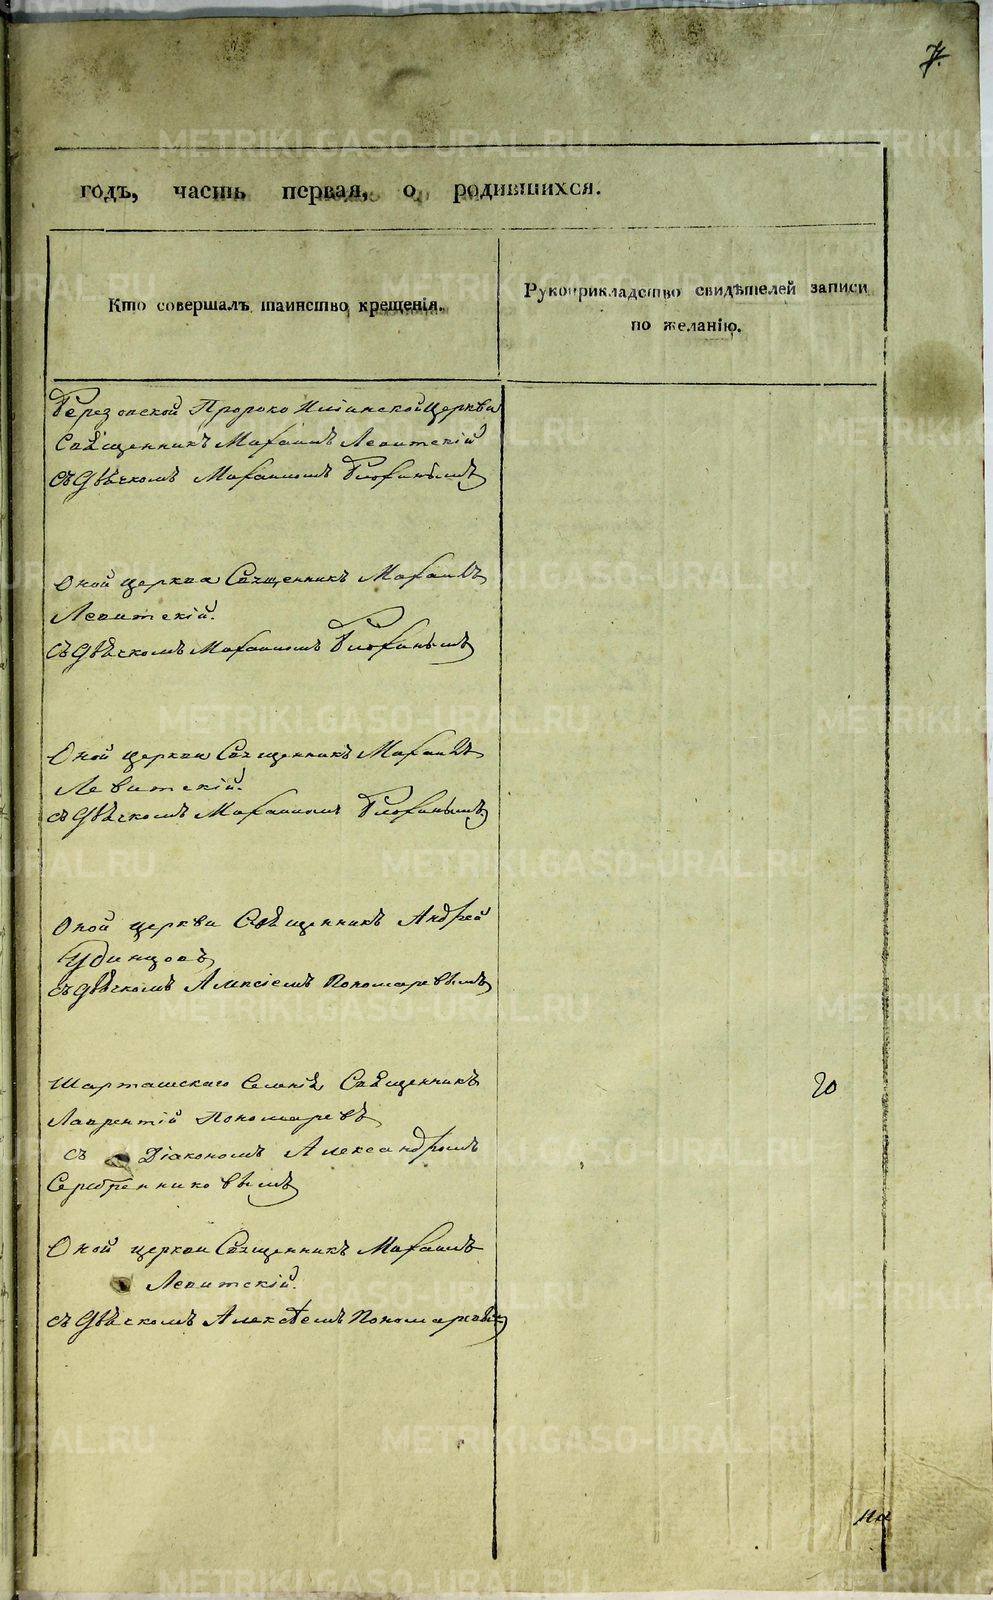 7.
годъ, часть первая, о родившихся.
Кто совершалъ таинство крещенія.
Рукоприкладство свидѣтелей записи
по желанію.
Березовской Пророко Илiинской Церкви
Свѣщенникъ Михаилъ Левитскій
съ Дьячкомъ Михаиломъ
Оной церкви Священникъ Михаилъ
Левитскій.
съ Дьячкомъ Михаиломъ
Оной церкви Священникъ Михаилъ
Левитскій.
съ Дьячкомъ Михаиломъ
Оной церкви Свѣщенникъ Андрей
Удинцовъ
съ Дьячкомъ Алексіемъ Пономаревымъ
Шарташскаго Селенія Свѣщенникъ
20
Лаврентій Пономаревъ
съ Діакономъ Александромъ
Серебренниковымъ
Оной церкви Священникъ Михаилъ
Левитскій.
съ Дьячкомъ Алексѣемъ Пономаревымъ
METRIKI.GASO-URAL.RU